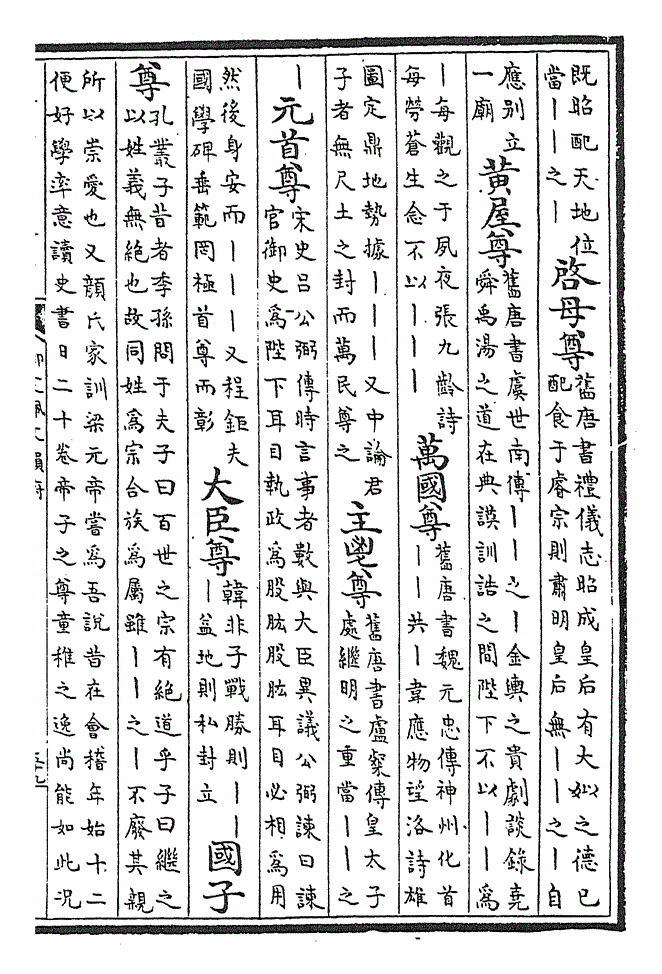 既昭配天地位
當丨丨之丨
啓母尊
舊唐書禮儀志昭成皇后有大姒之德已
配食于睿宗則肅明皇后無丨丨之丨自
應别立
一廟
黄屋尊
舊唐書虞世南傳丨丨之丨金輿之貴劇談錄堯
舜禹湯之道在典謨訓誥之間陛下不以丨丨爲
丨每觀之于夙夜張九齡詩
每勞蒼生念不以丨丨丨
萬國尊
舊唐書魏元忠傳神州化首
丨丨共丨韋應物望洛詩雄
圖定鼎地勢據丨丨丨又中論君
子者無尺土之封而萬民尊之
主鬯尊
舊唐書盧粲傳皇太子
處繼明之重當丨丨之
丨
元首尊
宋史吕公弼傳時言事者數與大臣異議公弼諫曰諫
官御史爲陛下耳目執政爲股肱股肱耳目必相爲用
然後身安而丨丨丨又程鉅夫
國學碑垂範罔極首尊而彰
大臣尊
韓非子戰勝則丨丨
丨益地則私封立
國子
尊
孔叢子昔者李孫問于夫子曰百世之宗有絶道乎子曰繼之
以姓義無絶也故同姓爲宗合族爲屬雖丨丨之丨不廢其親
所以崇愛也又顔氏家訓梁元帝嘗爲吾說昔在會稽年始十二
便好學率意讀史書日二十卷帝子之尊童稚之逸尚能如此况